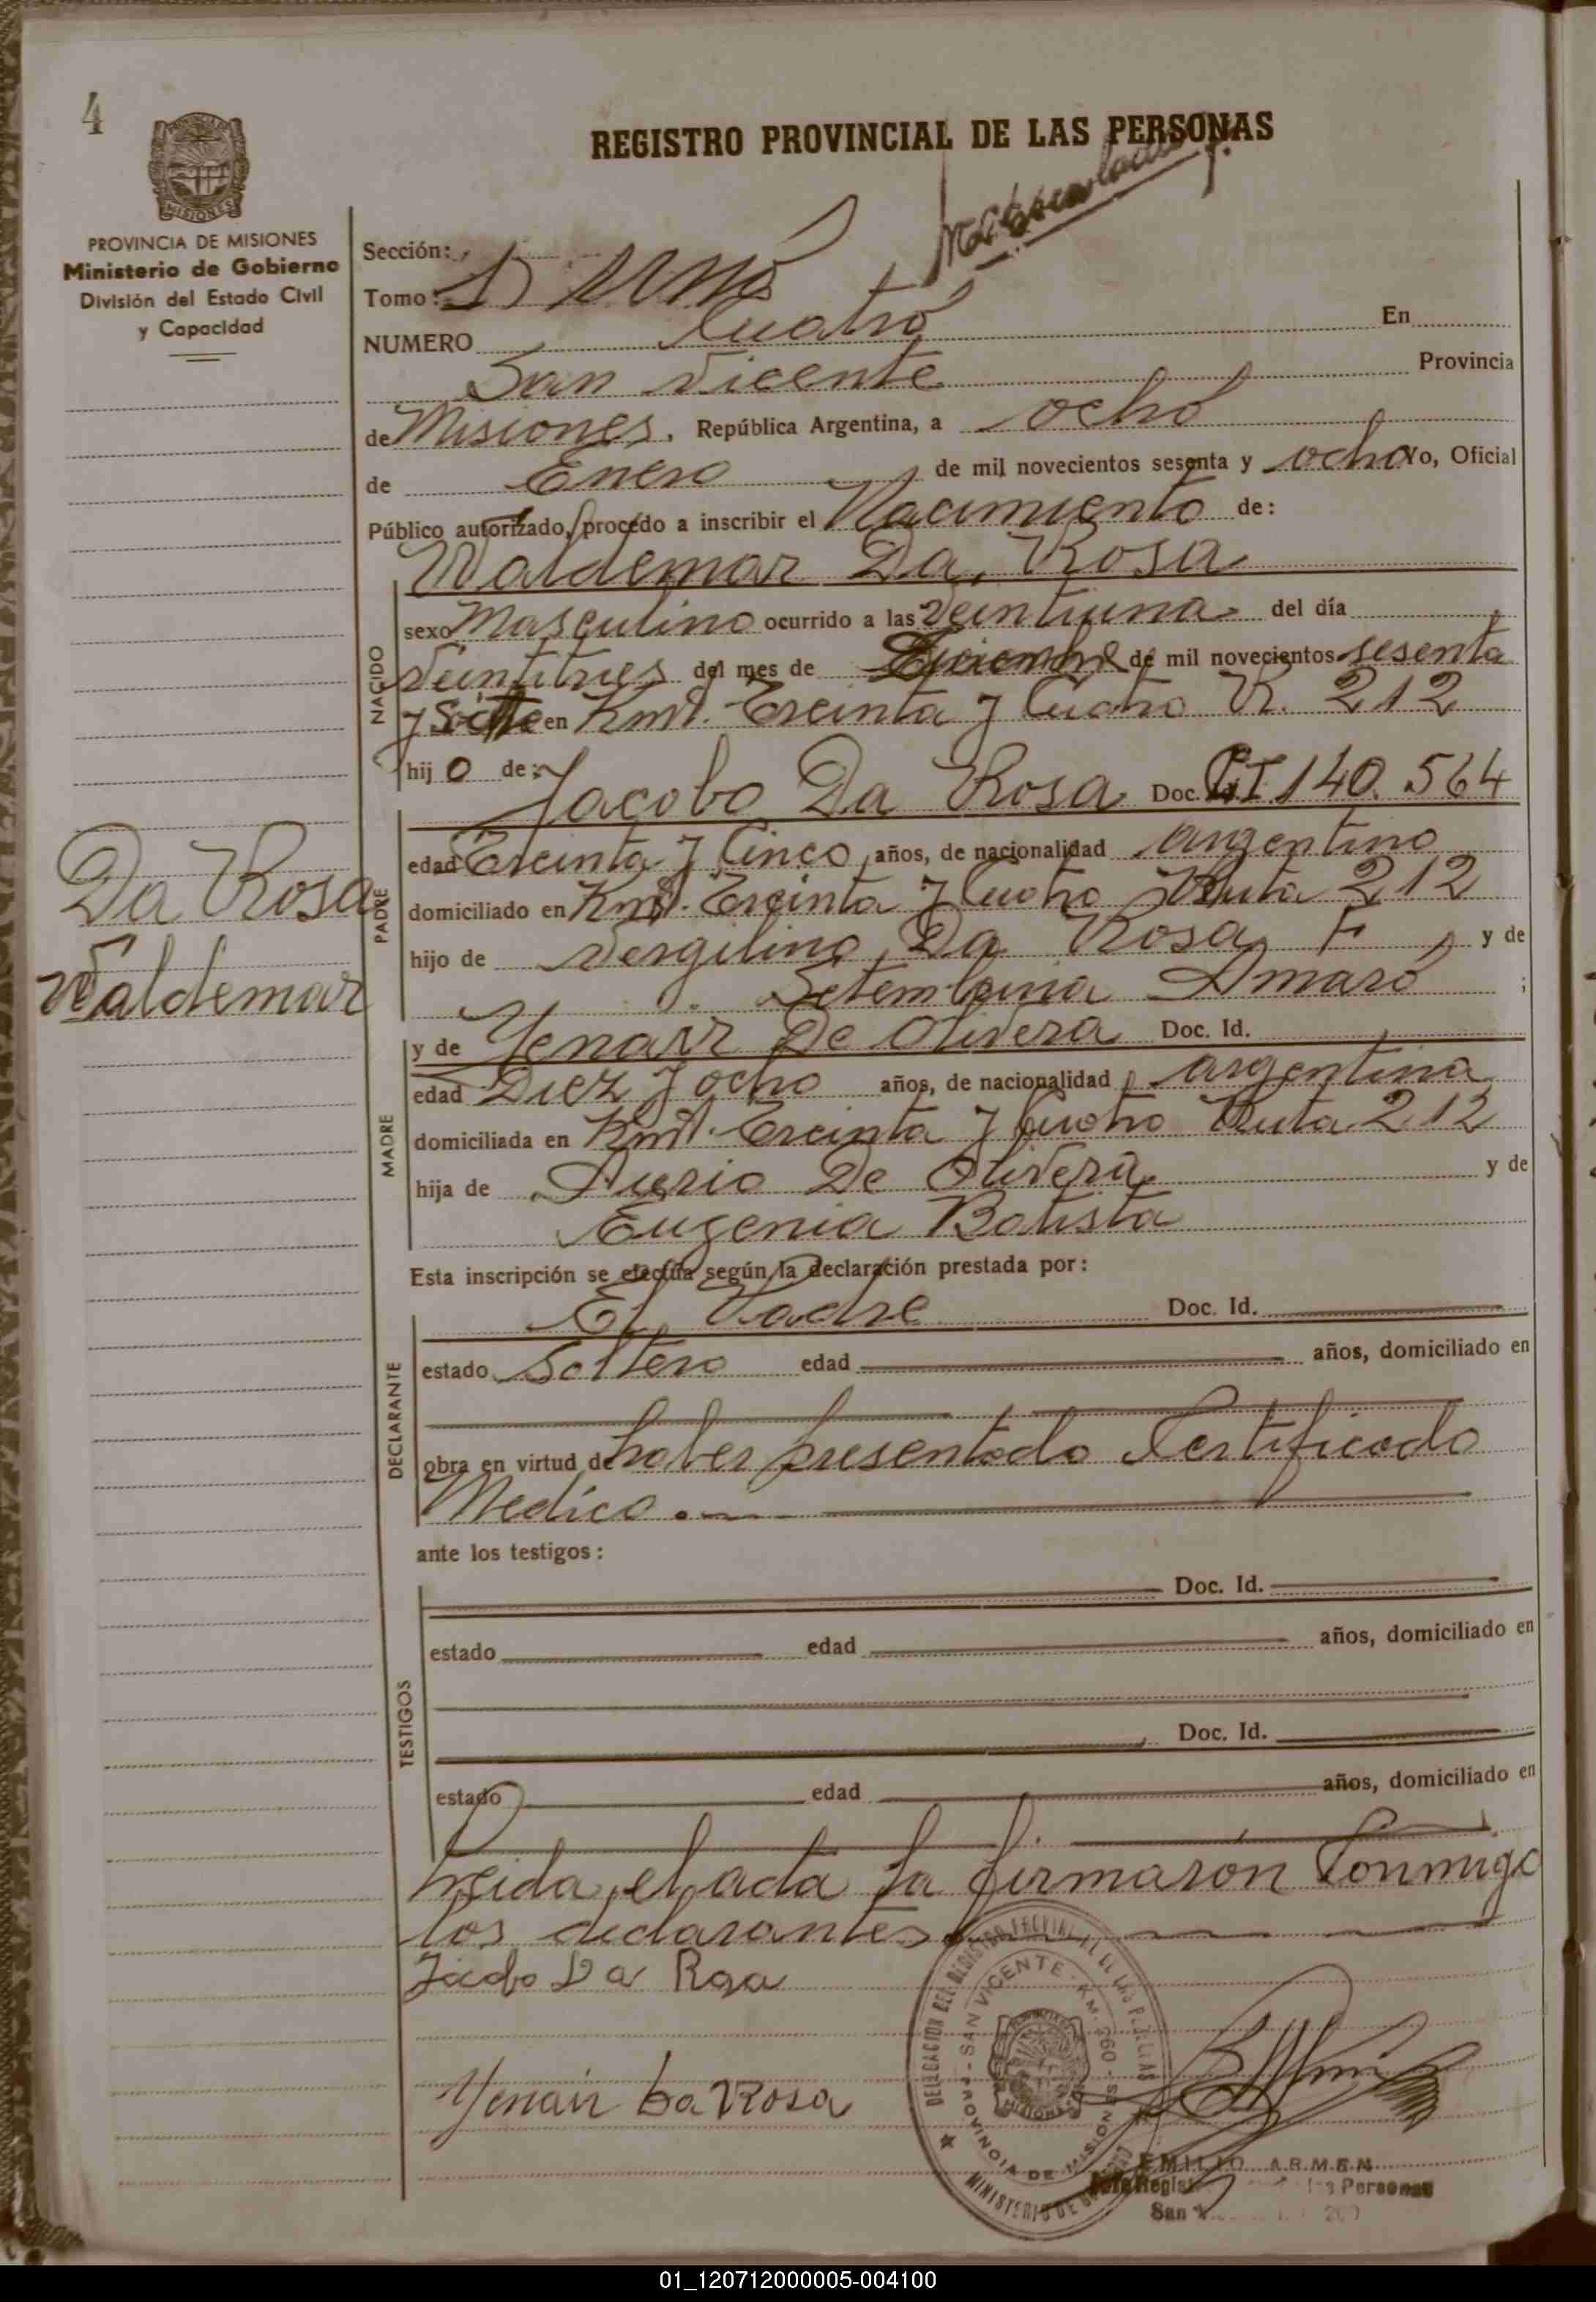 4
REGISTRO PROVINCIAL DE LAS PERSONAS
PROVINCIA DE MISIONES
Ministerio de Gobierno
División del Estado Civil
y Capacidad
Sección:
Tomo: 1) UNO
NUMERO Cuatro En
San Vicente Provincia
de Misiones, República Argentina, a ocho
de Enero de mil novecientos sesenta y ocho Yo, Oficial
Público autorizado, procedo a inscribir el Nacimiento de:
Waldemar Da Rosa
NACIDO
sexo Masculino ocurrido a las Veintiuna del día
Veintitres del mes de Diciembre de mil novecientos sesenta
y Siete en Kmt. Treinta y Cuatro R. 212
hijo de: Jacobo Da Rosa Doc. C.I 140.564
PADRE
edad Treinta y Cinco años, de nacionalidad argentino
domiciliado en Kmt. Treinta y Cuatro Ruta 212
hijo de Vergilino Da Rosa F y de
Setembrina Amaro ;
Da Rosa
Waldemar
MADRE
y de Yenair De Olivera Doc. Id.
edad Diez y ocho años, de nacionalidad argentina
domiciliada en Kmt. Treinta y Cuatro Ruta 212
hija de De Olivera y de
Eugenia Batista
Esta inscripción se efectúa según la declaración prestada por:
DECLARANTE
El Padre Doc. Id.
estado Soltero edad años, domiciliado en
obra en virtud de haber presentado Certificado
Medico.
ante los testigos:
TESTIGOS
Doc. Id.
estado edad años, domiciliado en
Doc. Id.
estado edad años, domiciliado en
Leida el acta la firmarón Conmigo
los declarantes
Jacobo Da Rosa
Yenair Da Rosa
DELEGACION DEL REGISTRO PROVINCIAL DE LAS PERSONAS
SAN VICENTE - KM. 260 - PROVINCIA DE MISIONES
MISIONES
MINISTERIO DE
EMILIO ARMEN
Personas
San
01_120712000005-004100